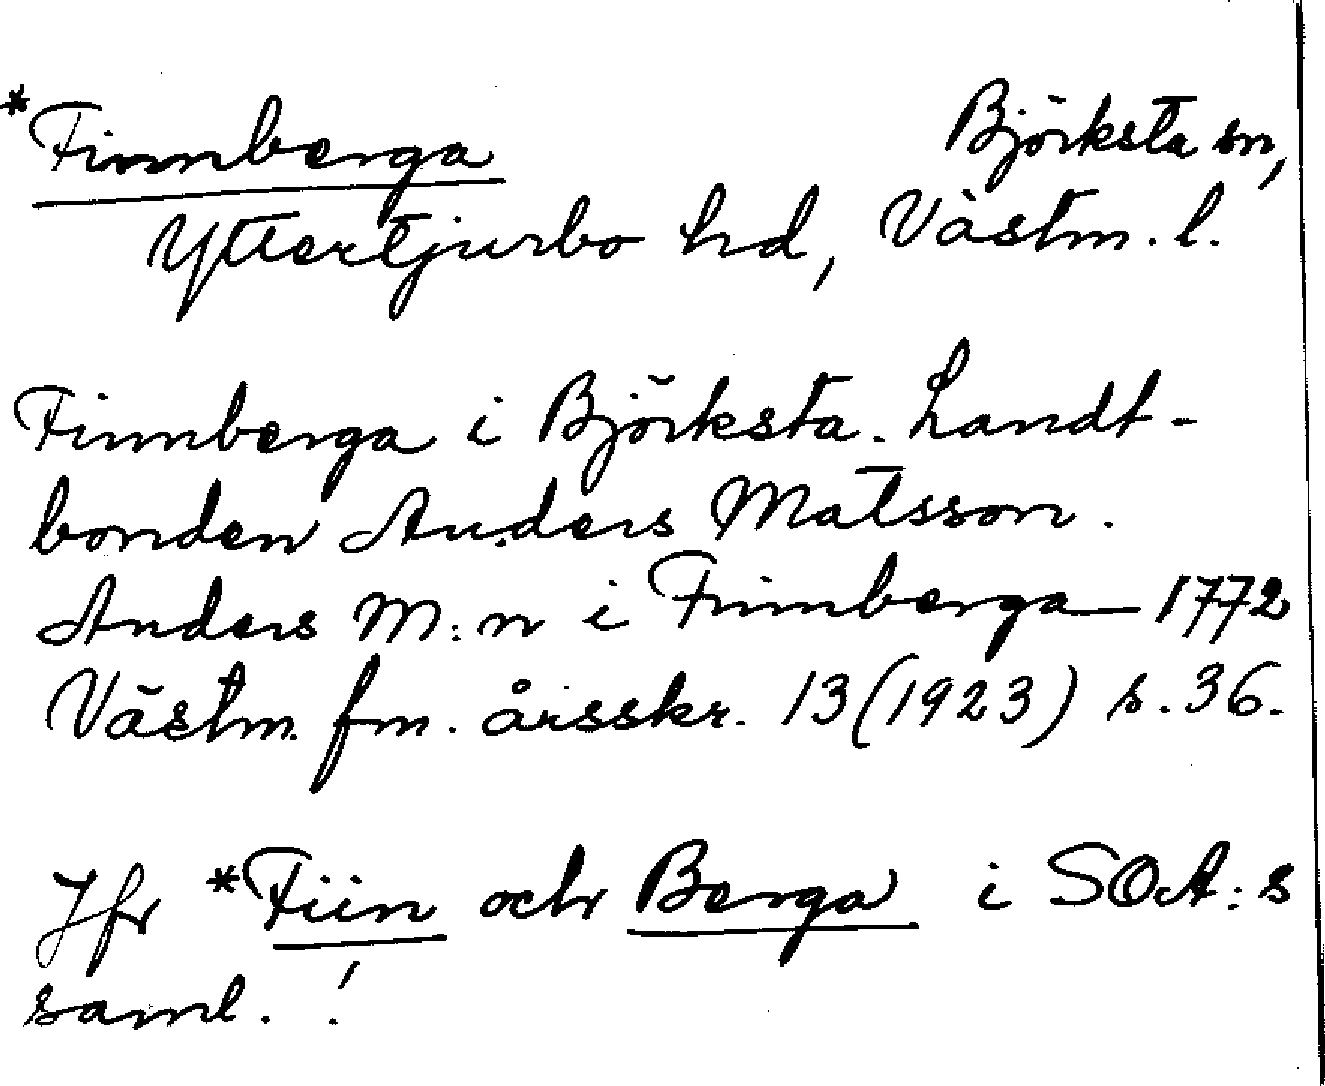 *Finnberga Björksta sn,
Yttertjurbo hd, Västm. l.
Finnberga i Björksta. Landt-
bonden Anders Matsson.
Anders M:n i Finnberga 1772
Västm. fm. årsskr. 13(1923) s. 36.
Jfr *Fiin och Berga i SOA:s
saml. !